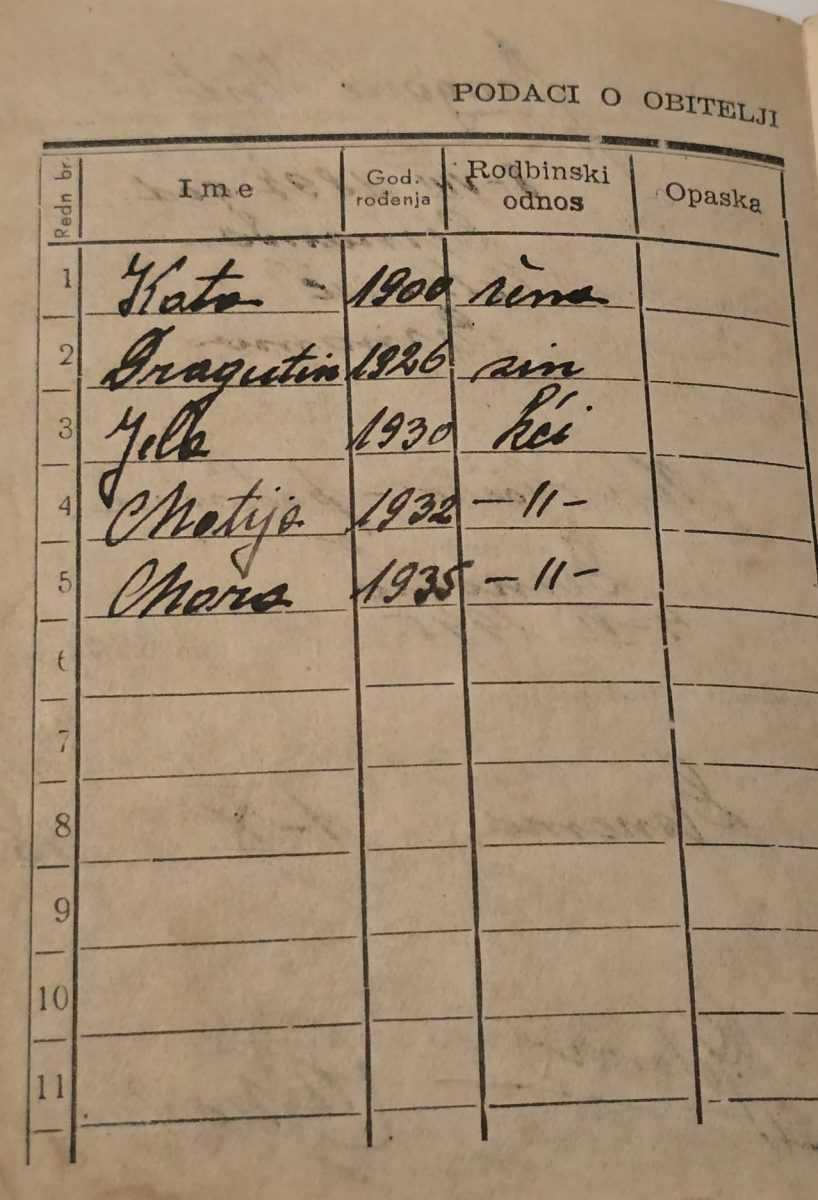 PODACI O OBITELJI
Redn br. Ime God. rođenja Rodbinski odnos Opaska
1 Kata 1900 žena
2 Dragutin 1926 sin
3 Jela 1930 kći
4 Matija 1932 —II—
5 Mara 1935 —II—
6
7
8
9
10
11